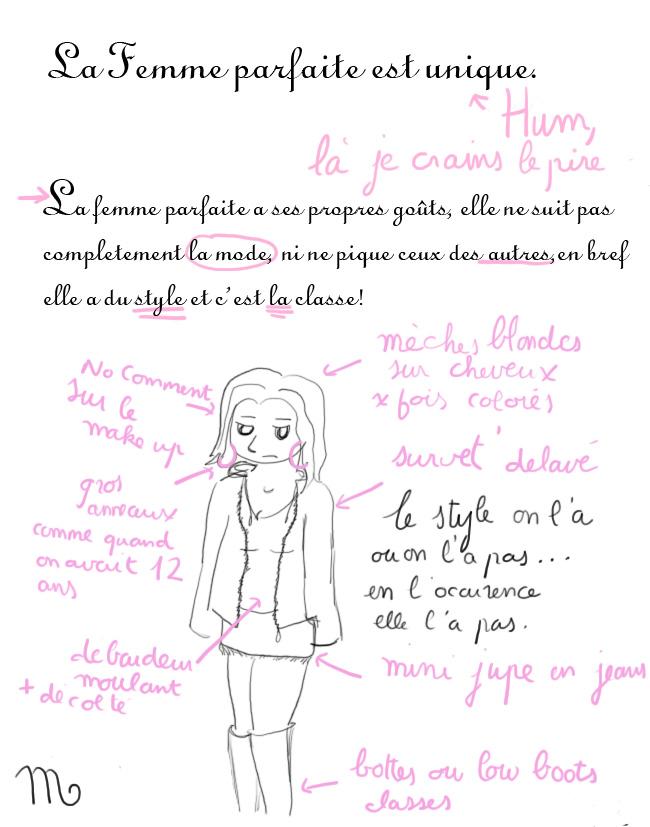 La Femme parfaite est unique.
Hum,
là je crains le pire
La femme parfaite a ses propres goûts, elle ne suit pas
completement la mode, ni ne pique ceux des autres, en bref
elle a du style et c'est la classe!
mèches blondes
sur cheveux
x fois colorés
No Comment
sur le
make up
survet' délavé
gros
anneaux
comme quand
on avait 12
ans
le style on l'a
ou on l'a pas...
en l'occurence
elle l'a pas.
debardeur
moulant
+ décolté
mini jupe en jeans
bottes ou low boots
classes
m